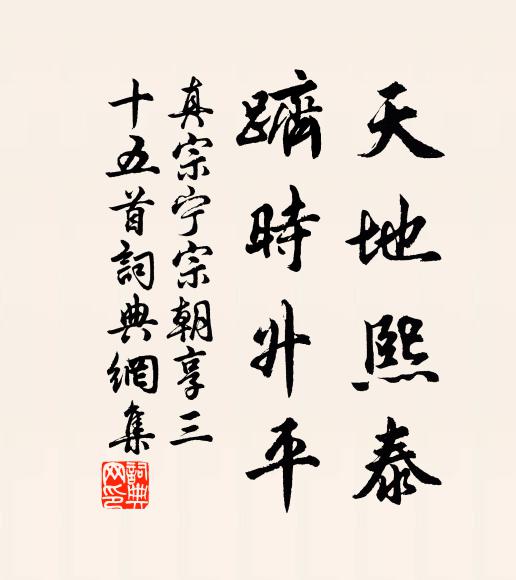 天地熙泰
躋時升平
真宗宁宗朝享三
十五首詞典網集
詞典网印